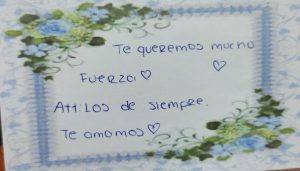 Te queremos mucho
Fuerza ♡ ♡
Att: Los de siempre.
Te amamos ♡